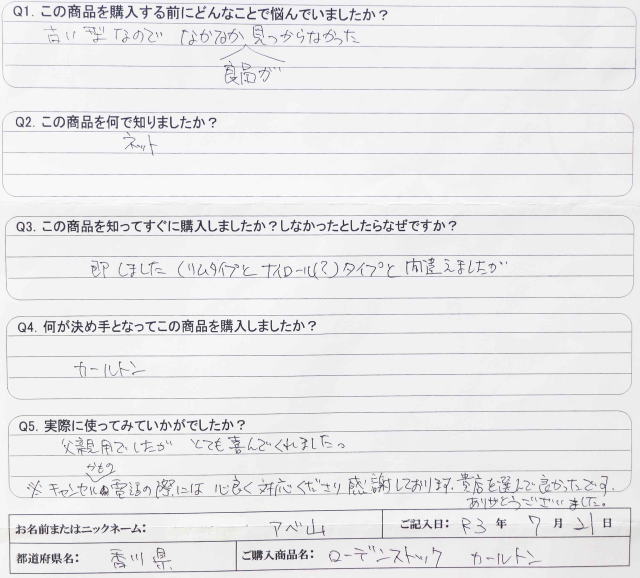 Q1. この商品を購入する前にどんなことで悩んでいましたか？
古い型なので なかなか見つからなかった
良品が
Q2. この商品を何で知りましたか？
ネット
Q3. この商品を知ってすぐに購入しましたか？しなかったとしたらなぜですか？
即しました（リムタイプとナイロール(？)タイプと間違えましたが
Q4. 何が決め手となってこの商品を購入しましたか？
カールトン
Q5. 実際に使ってみていかがでしたか？
父親用でしたが とても喜んでくれました。
かもの
※キャンセル電話の際には 心良く対応くださり感謝しております。貴店を選んで良かったです。
ありがとうございました。
お名前またはニックネーム： アベ山 ご記入日： R3 年 7 月 21 日
都道府県名： 香川県 ご購入商品名： ローデンストック カールトン